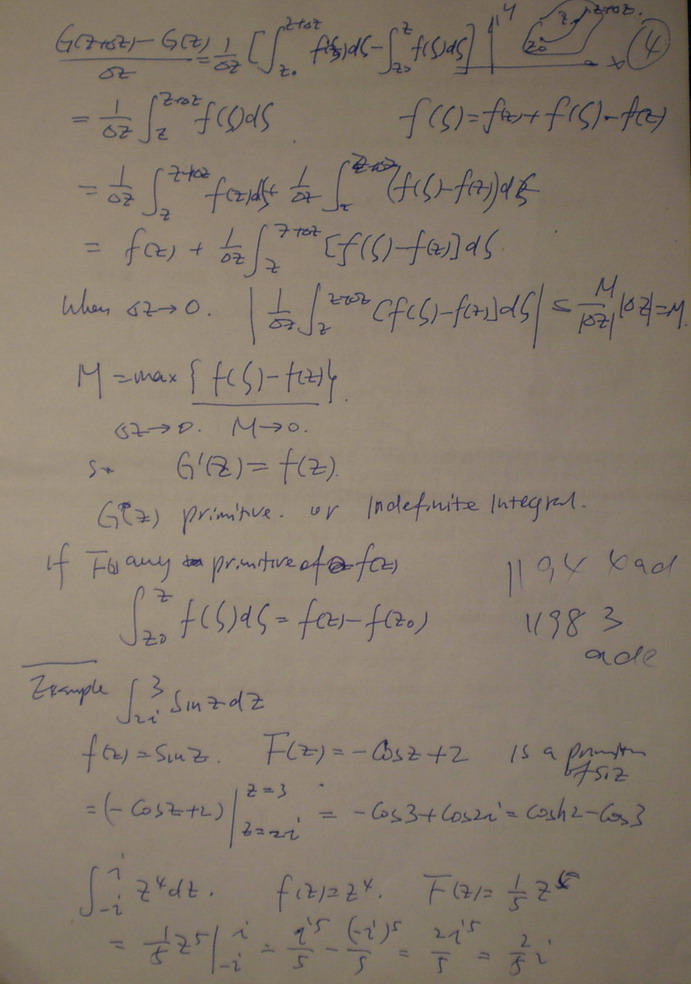 G(z+Δz)-G(z)/Δz = 1/Δz [∫_{z0}^{z+Δz} f(ζ)dζ - ∫_{z0}^{z} f(ζ)dζ] y z0 z z+Δz x 4
= 1/Δz ∫_z^{z+Δz} f(ζ)dζ f(ζ)=f(z)+f(ζ)-f(z)
= 1/Δz ∫_z^{z+Δz} f(z)dζ + 1/Δz ∫_z^{z+Δz} (f(ζ)-f(z))dζ
= f(z) + 1/Δz ∫_z^{z+Δz} [f(ζ)-f(z)]dζ
When Δz→0. |1/Δz ∫_z^{z+Δz} [f(ζ)-f(z)]dζ| ≤ M/|Δz| |Δz|=M.
M=max{f(ζ)-f(z)}.
Δz→0. M→0.
So G'(z)=f(z).
G(z) primitive. or Indefinite Integral.
if F(z) any primitive of f(z)
∫_{z0}^{z} f(ζ)dζ=f(z)-f(z0)
1198 3
Example ∫_{2i}^{3} Sin z dz
f(z)=Sin z. F(z)=-Cos z+2 is a
=(-Cos z+2)|_{z=2i}^{z=3} = -Cos3+Cos2i=Cosh2-Cos3
∫_{-i}^{i} z^4 dz. f(z)=z^4. F(z)=1/5 z^5
= 1/5 z^5|_{-i}^{i} = i^5/5 - (-i)^5/5 = 2i^5/5 = 2/5 i